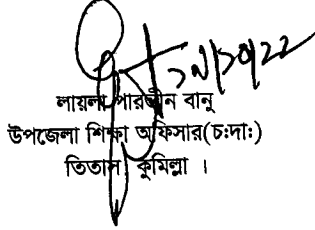 ১৯/১০/২২
লায়লা পারভীন বানু
উপজেলা শিক্ষা অফিসার(চ:দা:)
তিতাস, কুমিল্লা ।